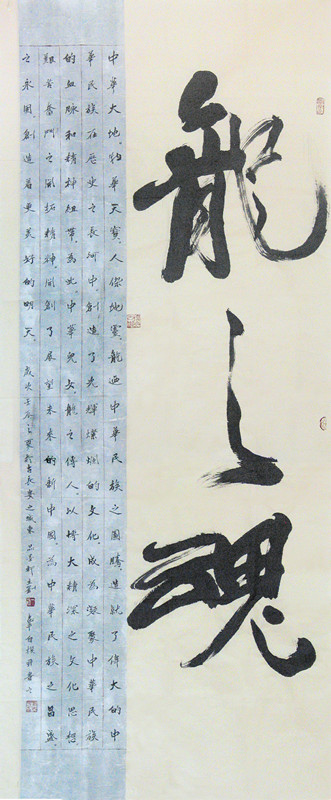 龍之魂
中華大地。物華天寶。人傑地靈。龍迺中華民族之圖騰造就了偉大的中
華民族在歷史之長河中。創造了光輝燦爛的文化。成為凝聚中華民族
的血脈和精神紐帶。為此中華兒女。龍之傳人。以博大精深之文化思想
艱苦奮鬥之開拓精神。開創了展望未來的新中國。為中華民族之昌盛
之永固。創造着更美好的明天。歲次壬辰之夏於古長安之城東